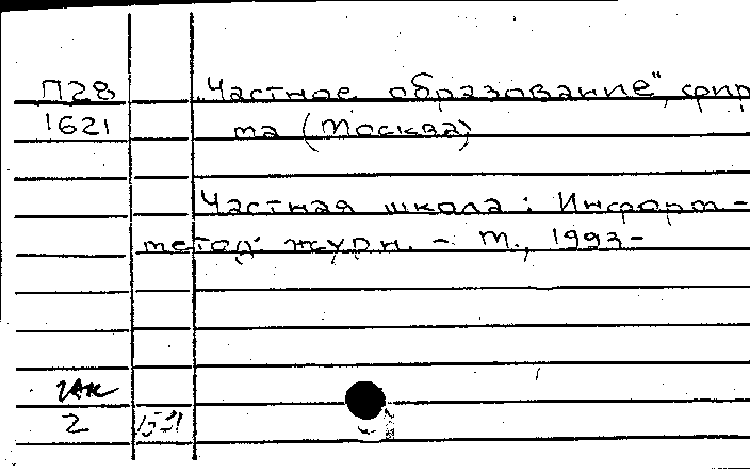 П28 „Частное образование", фир
1621 ма (Москва)
Частная школа: Информ-
метод. журн. - М., 1993-
2